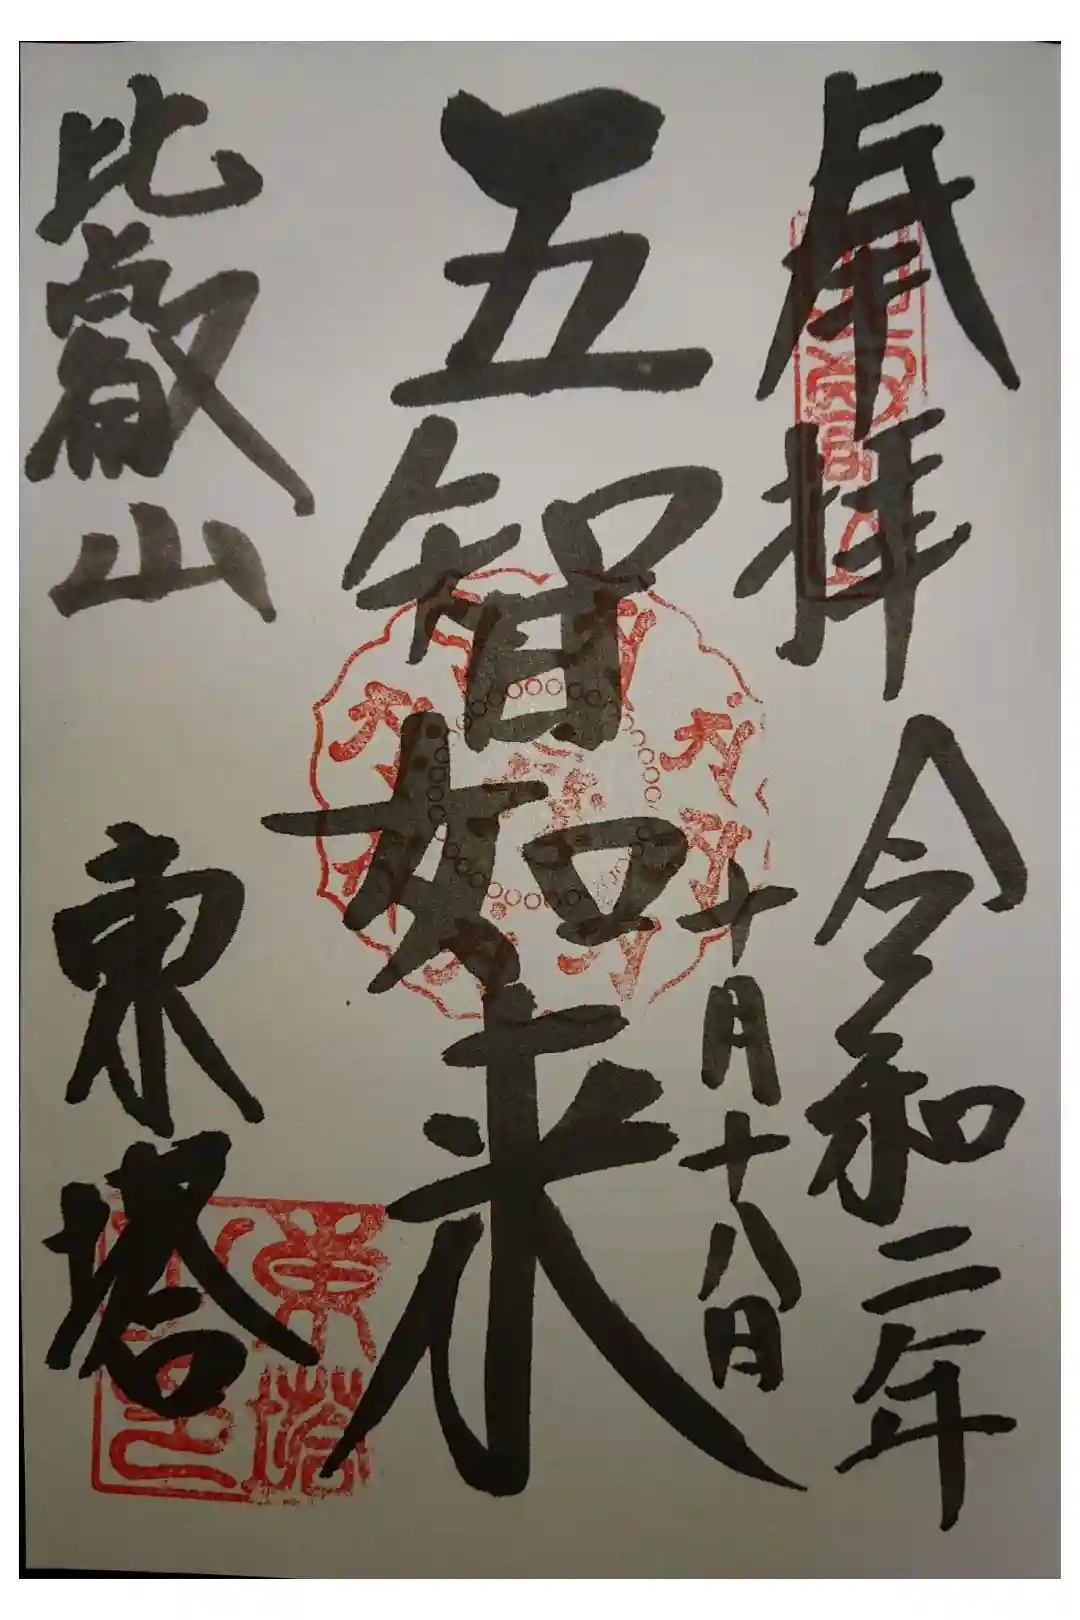 奉拝 令和二年
十月十八日
五智如来
比叡山 東塔
東塔